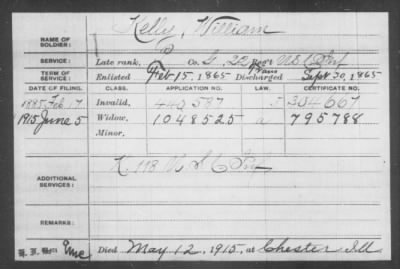 NAME OF SOLDIER: Kelly, William
SERVICE: Late rank, Co. G, 22 Reg't U.S.C. Inf
TERM OF SERVICE: Enlisted Feb 15, 1865 Discharged Sept. 30, 1865
DATE OF FILING. CLASS. APPLICATION NO. LAW. CERTIFICATE NO.
1885 Feb 17 Invalid, 440,587 304667
1915 June 5 Widow, 1048525 a 795788
Minor,
ADDITIONAL SERVICES: K, 118 U.S.C. Inf
REMARKS:
Died May 12, 1915, at Chester Ill